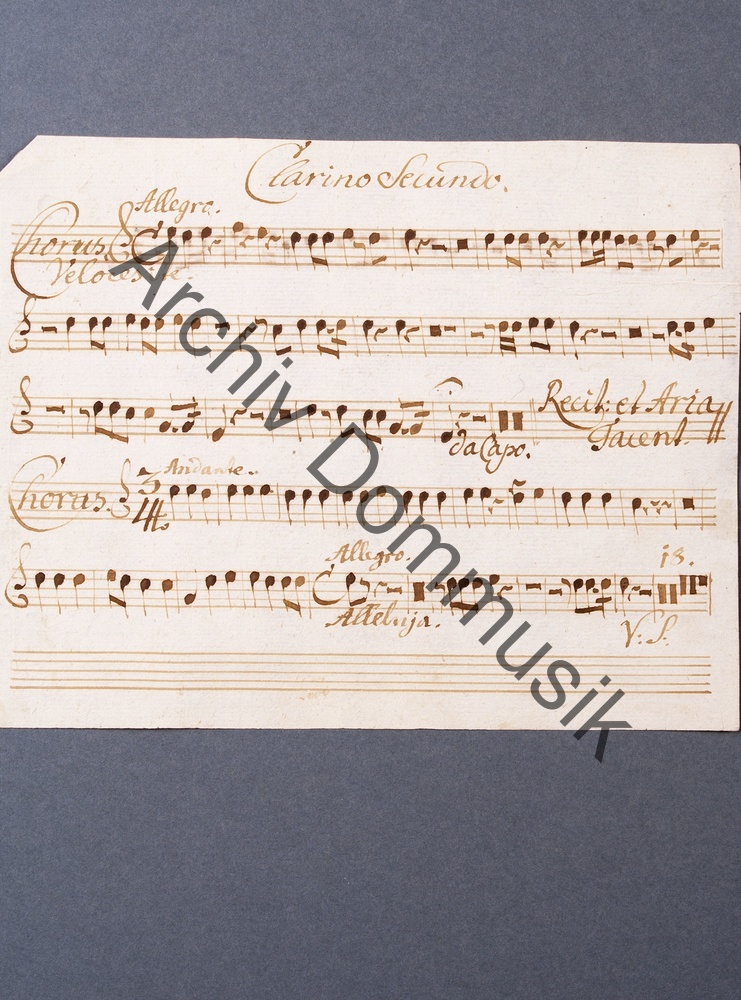 Clarino Secundo.
Allegro.
Chorus
Veloces ite.
Recit: et Aria
Tacent.
da Capo.
Andante.
Chorus.
3
4
Allegro.
13.
Alleluja.
V: S.
Archiv Dommusik